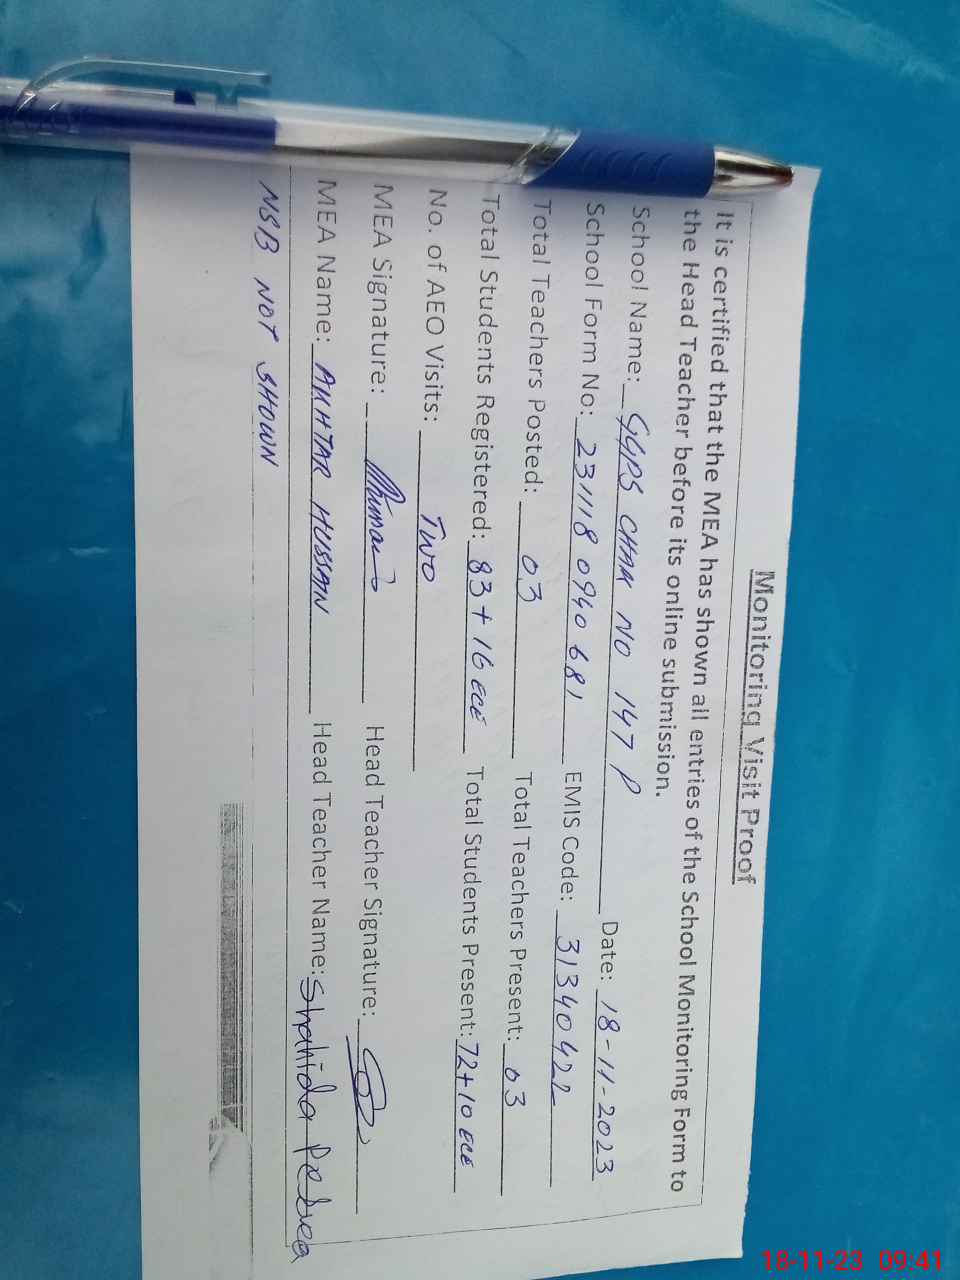 Monitoring Visit Proof
It is certified that the MEA has shown all entries of the School Monitoring Form to
the Head Teacher before its online submission.
School Name: GGPS CHAK NO 147 P Date: 18-11-2023
School Form No: 231118 0940 681 EMIS Code: 31340422
Total Teachers Posted: 03 Total Teachers Present: 03
Total Students Registered: 83 + 16 ECE Total Students Present: 72+10 ECE
No. of AEO Visits: TWO
MEA Signature: Head Teacher Signature:
MEA Name: AKHTAR HUSSAIN Head Teacher Name: Shahida
NSB NOT SHOWN
18-11-23 09:41